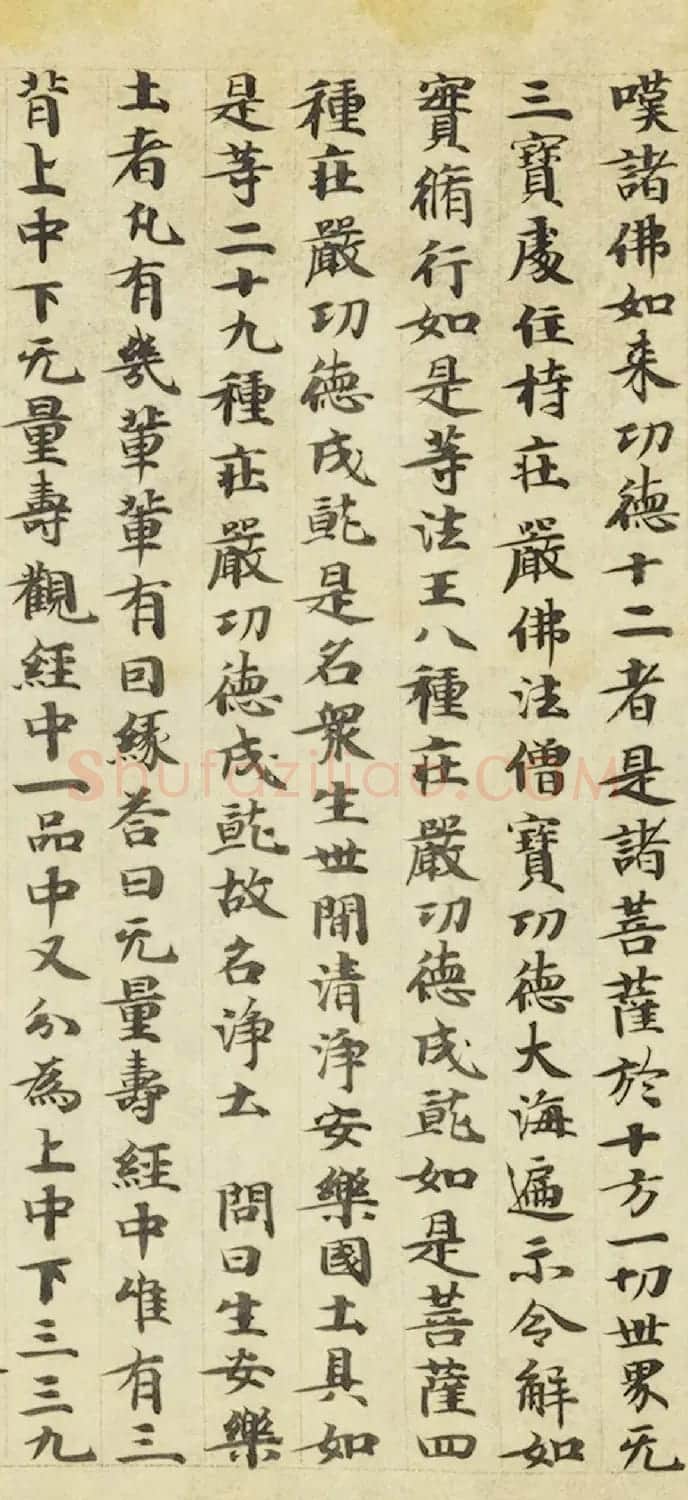 嘆諸佛如来功德十二者是諸菩薩於十方一切世界无
三寶處住持莊嚴佛法僧寶功德大海遍示令解如
實脩行如是等法王八種莊嚴功德成就如是菩薩四
種莊嚴功德成就是名衆生世間清淨安樂國土具如
是等二十九種莊嚴功德成就故名淨土　問曰生安樂
土者凡有幾輩輩有因緣答曰无量壽經中唯有三
輩上中下无量壽觀經中一品中又分為上中下三三九
Shufaziliao.COM